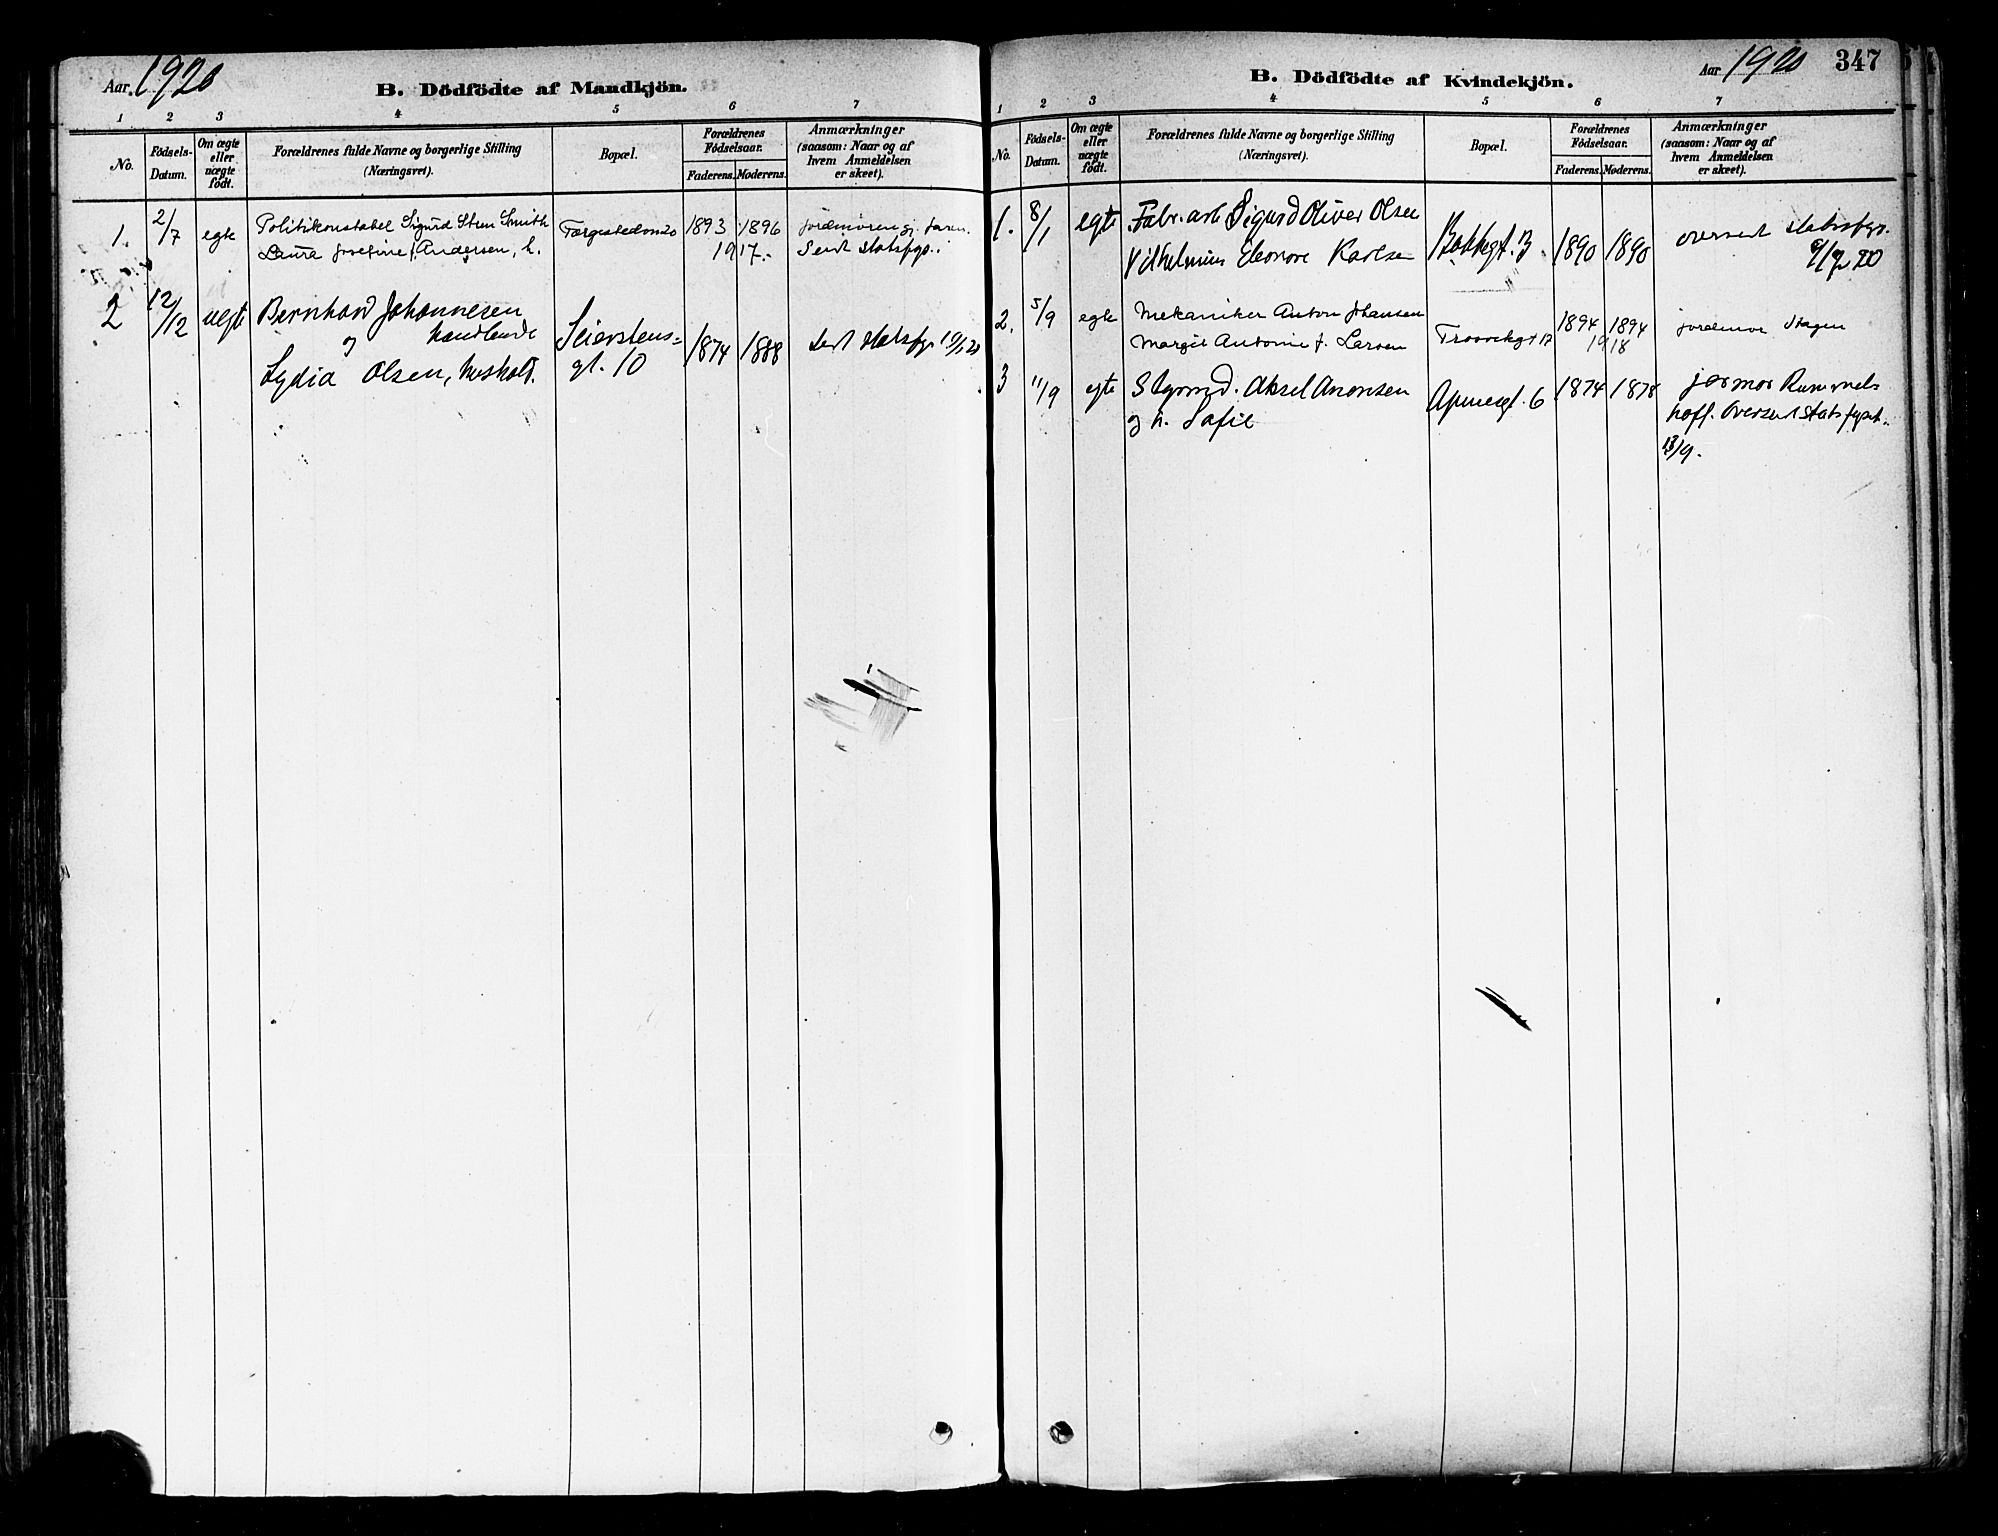 Aar. 1920
B. Dödfödte af Mandkjön.
1 2 3 4 5 6 7
No. Födsels-Datum. Om ægte eller uægte födt. Forældrenes fulde Navne og borgerlige Stilling (Næringsvei). Bopæl. Forældrenes Födselsaar. Faderens. Moderens. Anmærkninger (saasom: Naar og af hvem Anmeldelsen er skeet).
1. 2/7 egte Politikonstabel Sigurd Sten Smith Færgestedon 20 1893 1896 jordmoren gj. faren.
Laura Josefine f. Andersen, h. 1917. Sendt statsfys.
2 12/12 uegte Bernhard Johannesen
og handlende
Lydia Olsen, hushold. Seierstens=
gt. 10 1874 1888 sendt statsfys.
Aar 1920 347
B. Dödfödte af Kvindekjön.
1 2 3 4 5 6 7
No. Födsels-Datum. Om ægte eller uægte födt. Forældrenes fulde Navne og borgerlige Stilling (Næringsvei). Bopæl. Forældrenes Födselsaar. Faderens. Moderens. Anmærkninger (saasom: Naar og af hvem Anmeldelsen er skeet).
1. 8/1 egte Fabr. arb Sigurd Oliver Olsen
Vilhelmine Eleonore Karlsen 1890 1890 oversendt statsfys.
20
2. 5/9 egte Mekaniker Anton Johansen 1894 1894 jordmor Hagen
Margit Antonie f. Larsen 1918
3 11/9 egte Styrmd. Aksel Aronsen
og h. Sofie 6 1874 1878 jormor Rummel-
hoff. Oversendt Statsfysik.
13/9.